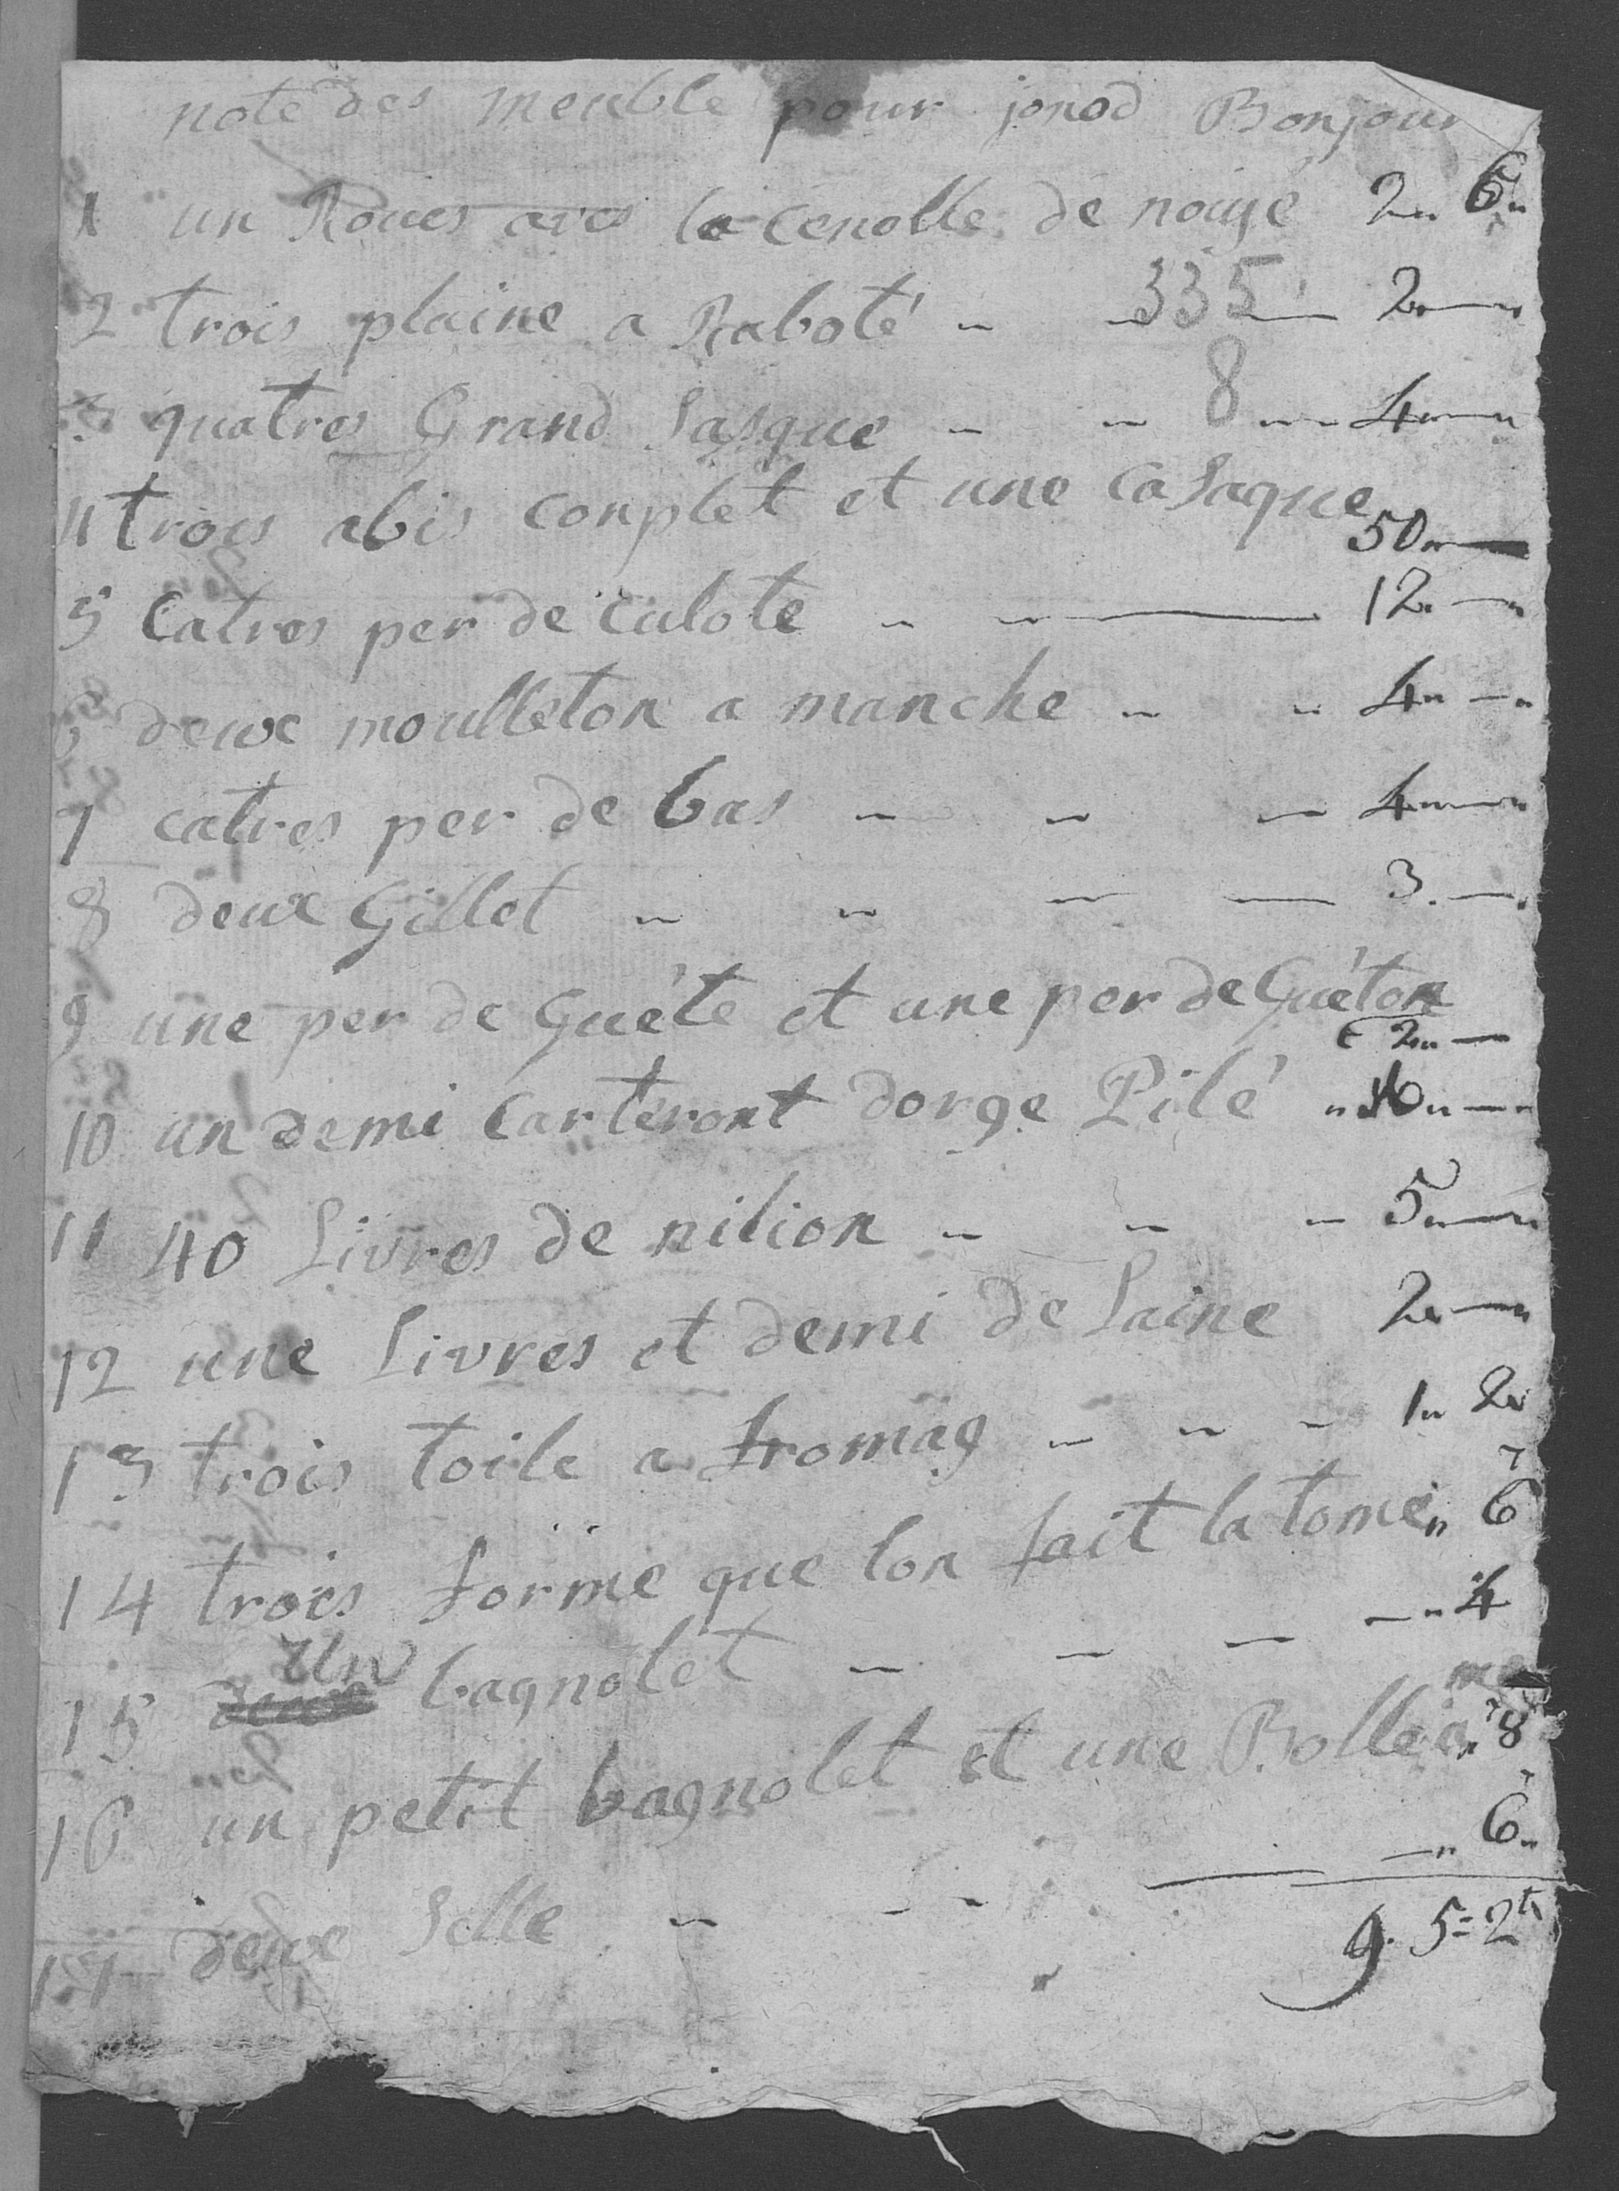 note des meuble pour jonod Bonjour
1 un Roues aves la cenolle de noiyé 2 6
2 trois plaine a Raboté 335 2
3 quatres Grand Sasque 8 4
4 trois abis conplet et une Casaque
50
5 Catres per de culote 12
6 deuxe moulleton a manche 4
7 catres per de bas 4
8 deux Gillet 3
9 une per de Guéte et une per de Guéton
2
10 un demi Carteront dorge Pilé
11 40 Livres de nilion 5
12 une Livres et demi de Laine 2
13 trois toile a fromag 1 2
14 trois forme que lon fait la tome 6
4
Un
15 bagnolet
16 un petit bagnolet et une Bolle 8
6
17 deuxe Selle
9. 5=2